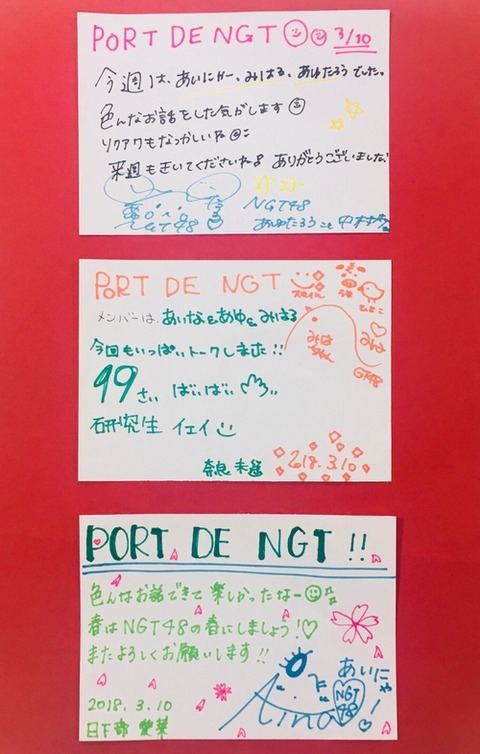 PORT DE NGT 3/10
今週は、あいにゃー、みはる、あゆたろうでした。
色んなお話をした気がします
リクアワもなつかしいね
来週もきいてくださいね♪ ありがとうございました!
NGT48
NGT48
あゆたろうこと 中村歩加
PORT DE NGT
スマイル
うま
ひよこ
メンバーは、あいな&あゆ&みはる
みはちゃん
今回もいっぱいトークしました!!
19さい ばいばい
研究生 イェイ
奈良 未遥
2018. 3.10
PORT DE NGT !!
色んなお話できて楽しかったなー
春はNGT48の春にしましょう!♡
またよろしくお願いします!!
あいにゃ!
Aina
NGT48
2018. 3. 10
日下部 愛菜